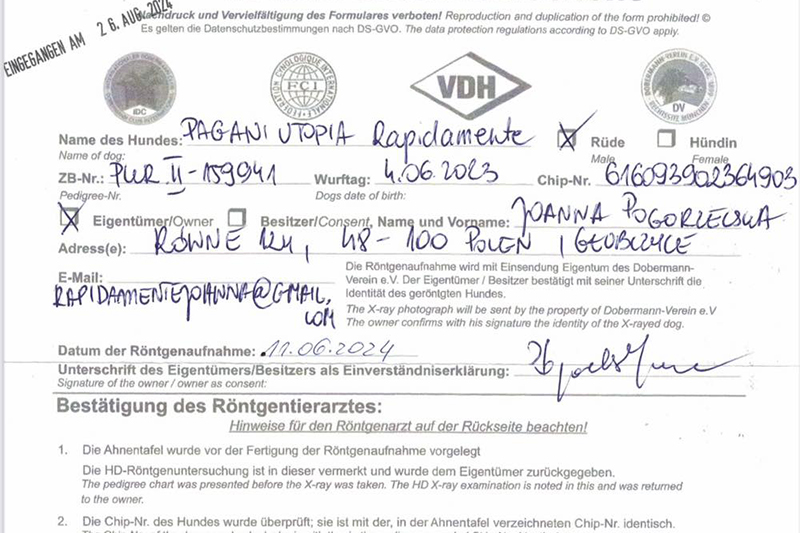 Nachdruck und Vervielfältigung des Formulares verboten! Reproduction and duplication of the form prohibited! ©
Es gelten die Datenschutzbestimmungen nach DS-GVO. The data protection regulations according to DS-GVO apply.
EINGEGANGEN AM 26. AUG. 2024
IDC
FCI
VDH
DV
Name des Hundes: PAGANI UTOPIA Rapidamente Rüde Hündin
Name of dog: Male Female
ZB-Nr.: PKR II-159941 Wurftag: 4.06.2023 Chip-Nr. 616093902364903
Pedigree-Nr. Dogs date of birth:
Eigentümer/Owner Besitzer/Consent, Name und Vorname: JOANNA POGORZELSKA
Adress(e): RÓWNE 124, 48-100 POLEN, GŁUBCZYCE
E-Mail:
RAPIDAMENTEJOANNA@GMAIL.
COM
Die Röntgenaufnahme wird mit Einsendung Eigentum des Dobermann-
Verein e.V. Der Eigentümer / Besitzer bestätigt mit seiner Unterschrift die
Identität des geröngten Hundes.
The X-ray photograph will be sent by the property of Dobermann-Verein e.V
The owner confirms with his signature the identity of the X-rayed dog.
Datum der Röntgenaufnahme: 11.06.2024
Unterschrift des Eigentümers/Besitzers als Einverständniserklärung:
Signature of the owner / owner as consent:
Bestätigung des Röntgentierarztes:
Hinweise für den Röntgenarzt auf der Rückseite beachten!
1. Die Ahnentafel wurde vor der Fertigung der Röntgenaufnahme vorgelegt
Die HD-Röntgenuntersuchung ist in dieser vermerkt und wurde dem Eigentümer zurückgegeben.
The pedigree chart was presented before the X-ray was taken. The HD X-ray examination is noted in this and was returned
to the owner.
2. Die Chip-Nr. des Hundes wurde überprüft; sie ist mit der, in der Ahnentafel verzeichneten Chip-Nr. identisch.